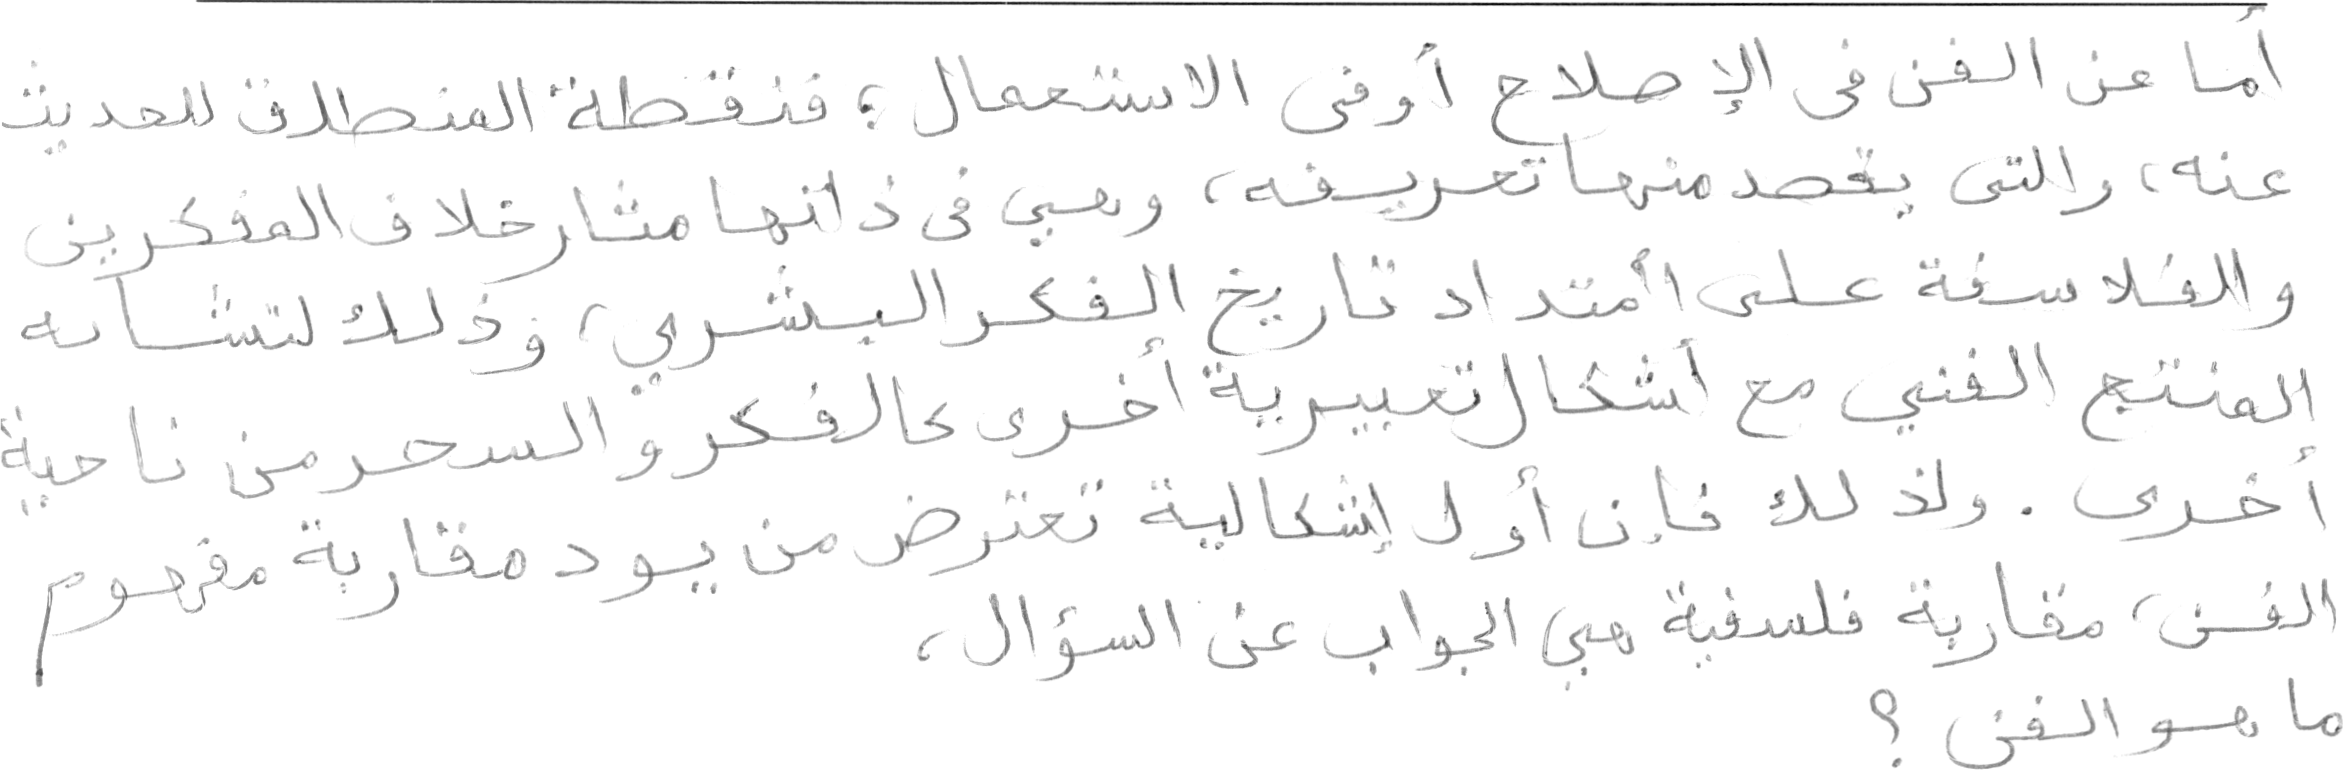 أما عن الفن في الإصلاح أو في الاستعمال ؛ فنقطة المنطلق للحديث
عنه، والتي يقصد منها تعريفه، وهي في ذاتها مثار خلاف المفكرين
والفلاسفة على اأمتداد تاريخ الفكر البشري، وذلك لتشابه
المنتج الفني مع أشكال تعبيرية أخرى كالفكر والسحر من ناحية
أخرى . ولذلك فإن أول إشكالية تعترض من يود مقاربة مفهوم
الفن، مقاربة فلسفية هي الجواب عن السؤال،
ما هو الفن ؟